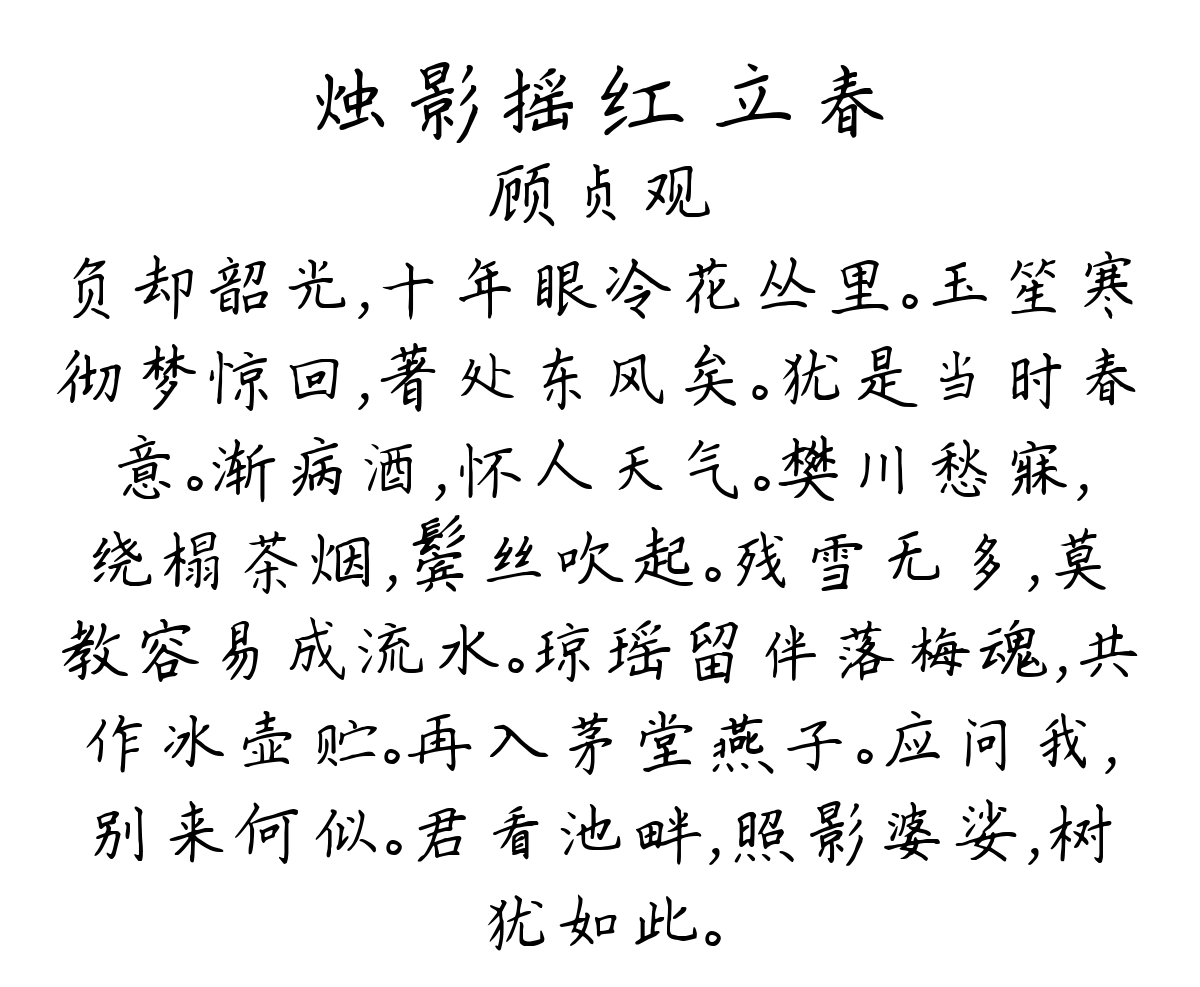 烛影摇红 立春
顾贞观
负却韶光,十年眼冷花丛里。玉笙寒
彻梦惊回,著处东风矣。犹是当时春
意。渐病酒,怀人天气。樊川愁寐,
绕榻茶烟,鬓丝吹起。残雪无多,莫
教容易成流水。琼瑶留伴落梅魂,共
作冰壶贮。再入茅堂燕子。应问我,
别来何似。君看池畔,照影婆娑,树
犹如此。